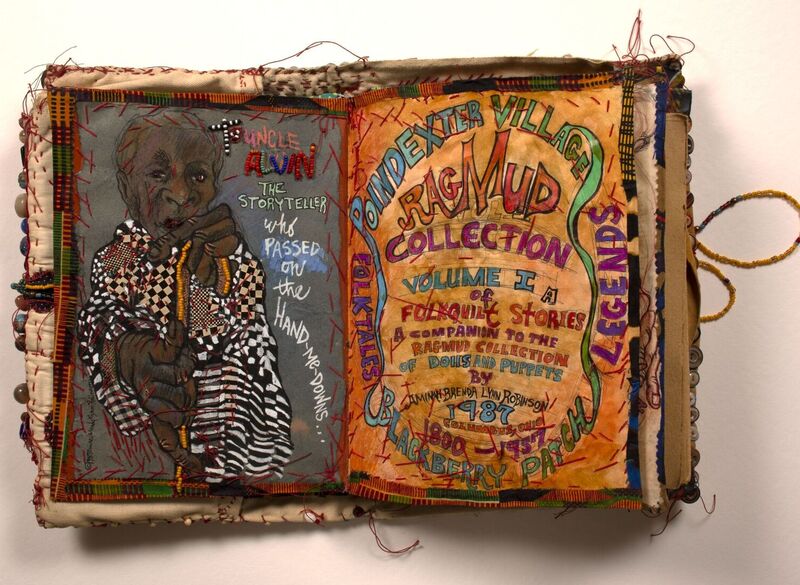 To UNCLE
ALVIN
THE
STORYTELLER
who
PASSED
on
the
HAND-ME-DOWNS...
POINDEXTER VILLAGE
RAGMUD
COLLECTION
VOLUME I
of
FOLKQUILT STORIES
A COMPANION TO THE
RAGMUD COLLECTION
OF DOLLS AND PUPPETS
BY
AMINAH BRENDA LYNN ROBINSON
1987
COLUMBUS, OHIO
1800-1957
BLACKBERRY PATCH
FOLKTALES
LEGENDS